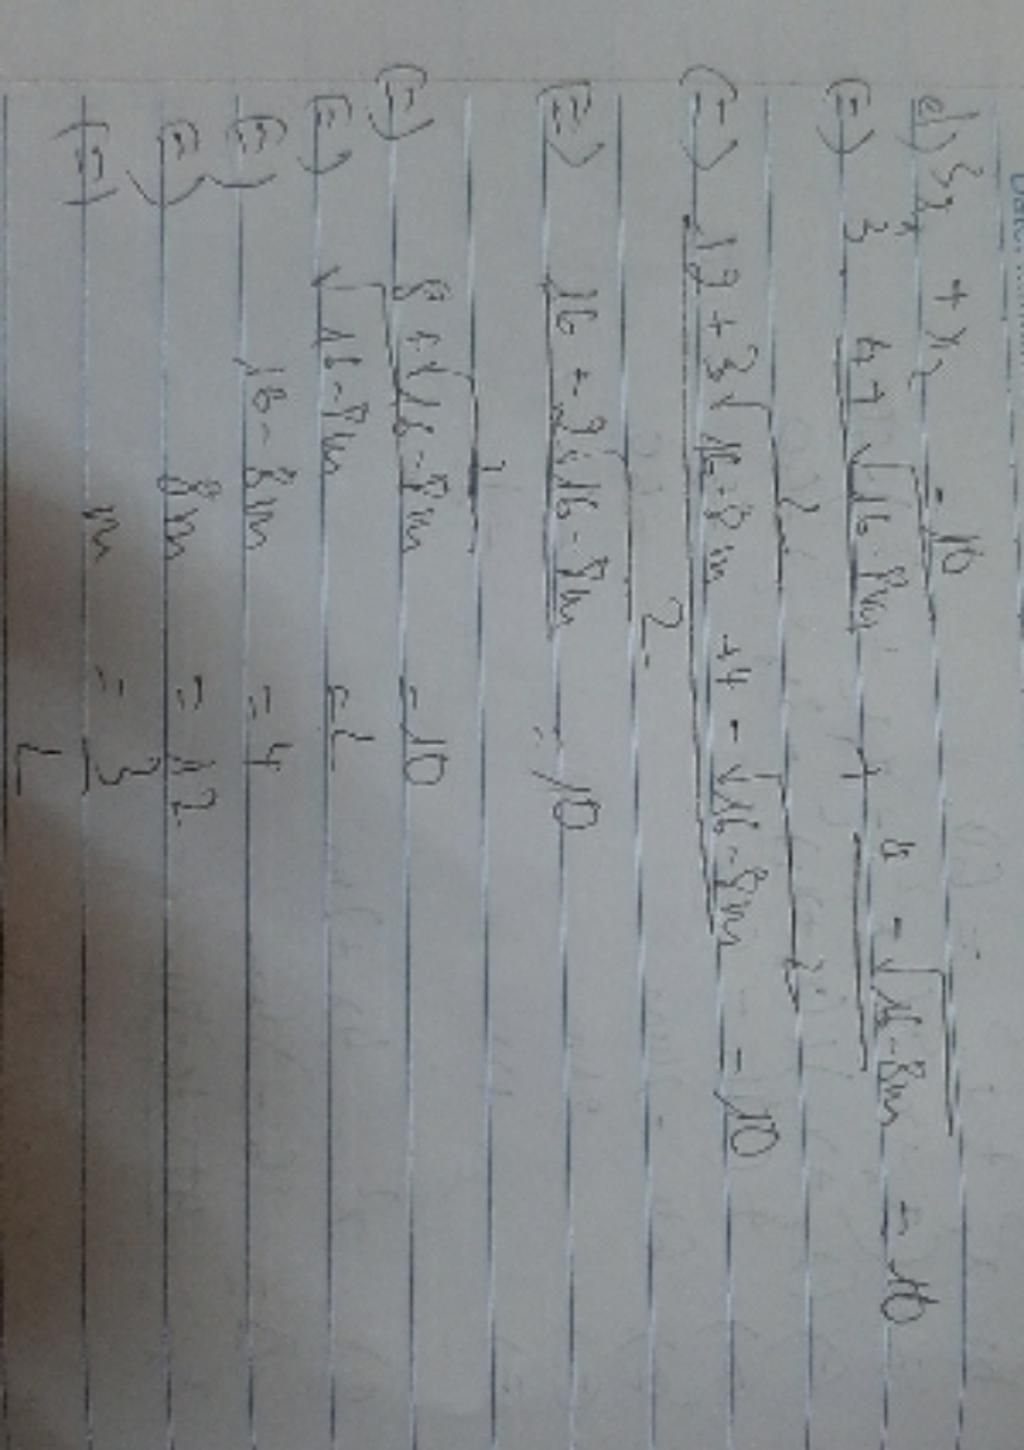 d) 3x₁ + x₂ = 10
(=) 3 · (4 + √(16-8m))/2 + (4 - √(16-8m))/2 = 10
(=) (12 + 3√(16-8m) + 4 - √(16-8m))/2 = 10
(=) (16 + 2√(16-8m))/2 = 10
(=) 8 + √(16-8m) = 10
(=) √(16-8m) = 2
(=) 16 - 8m = 4
(=) 8m = 12
(=) m = 3/2